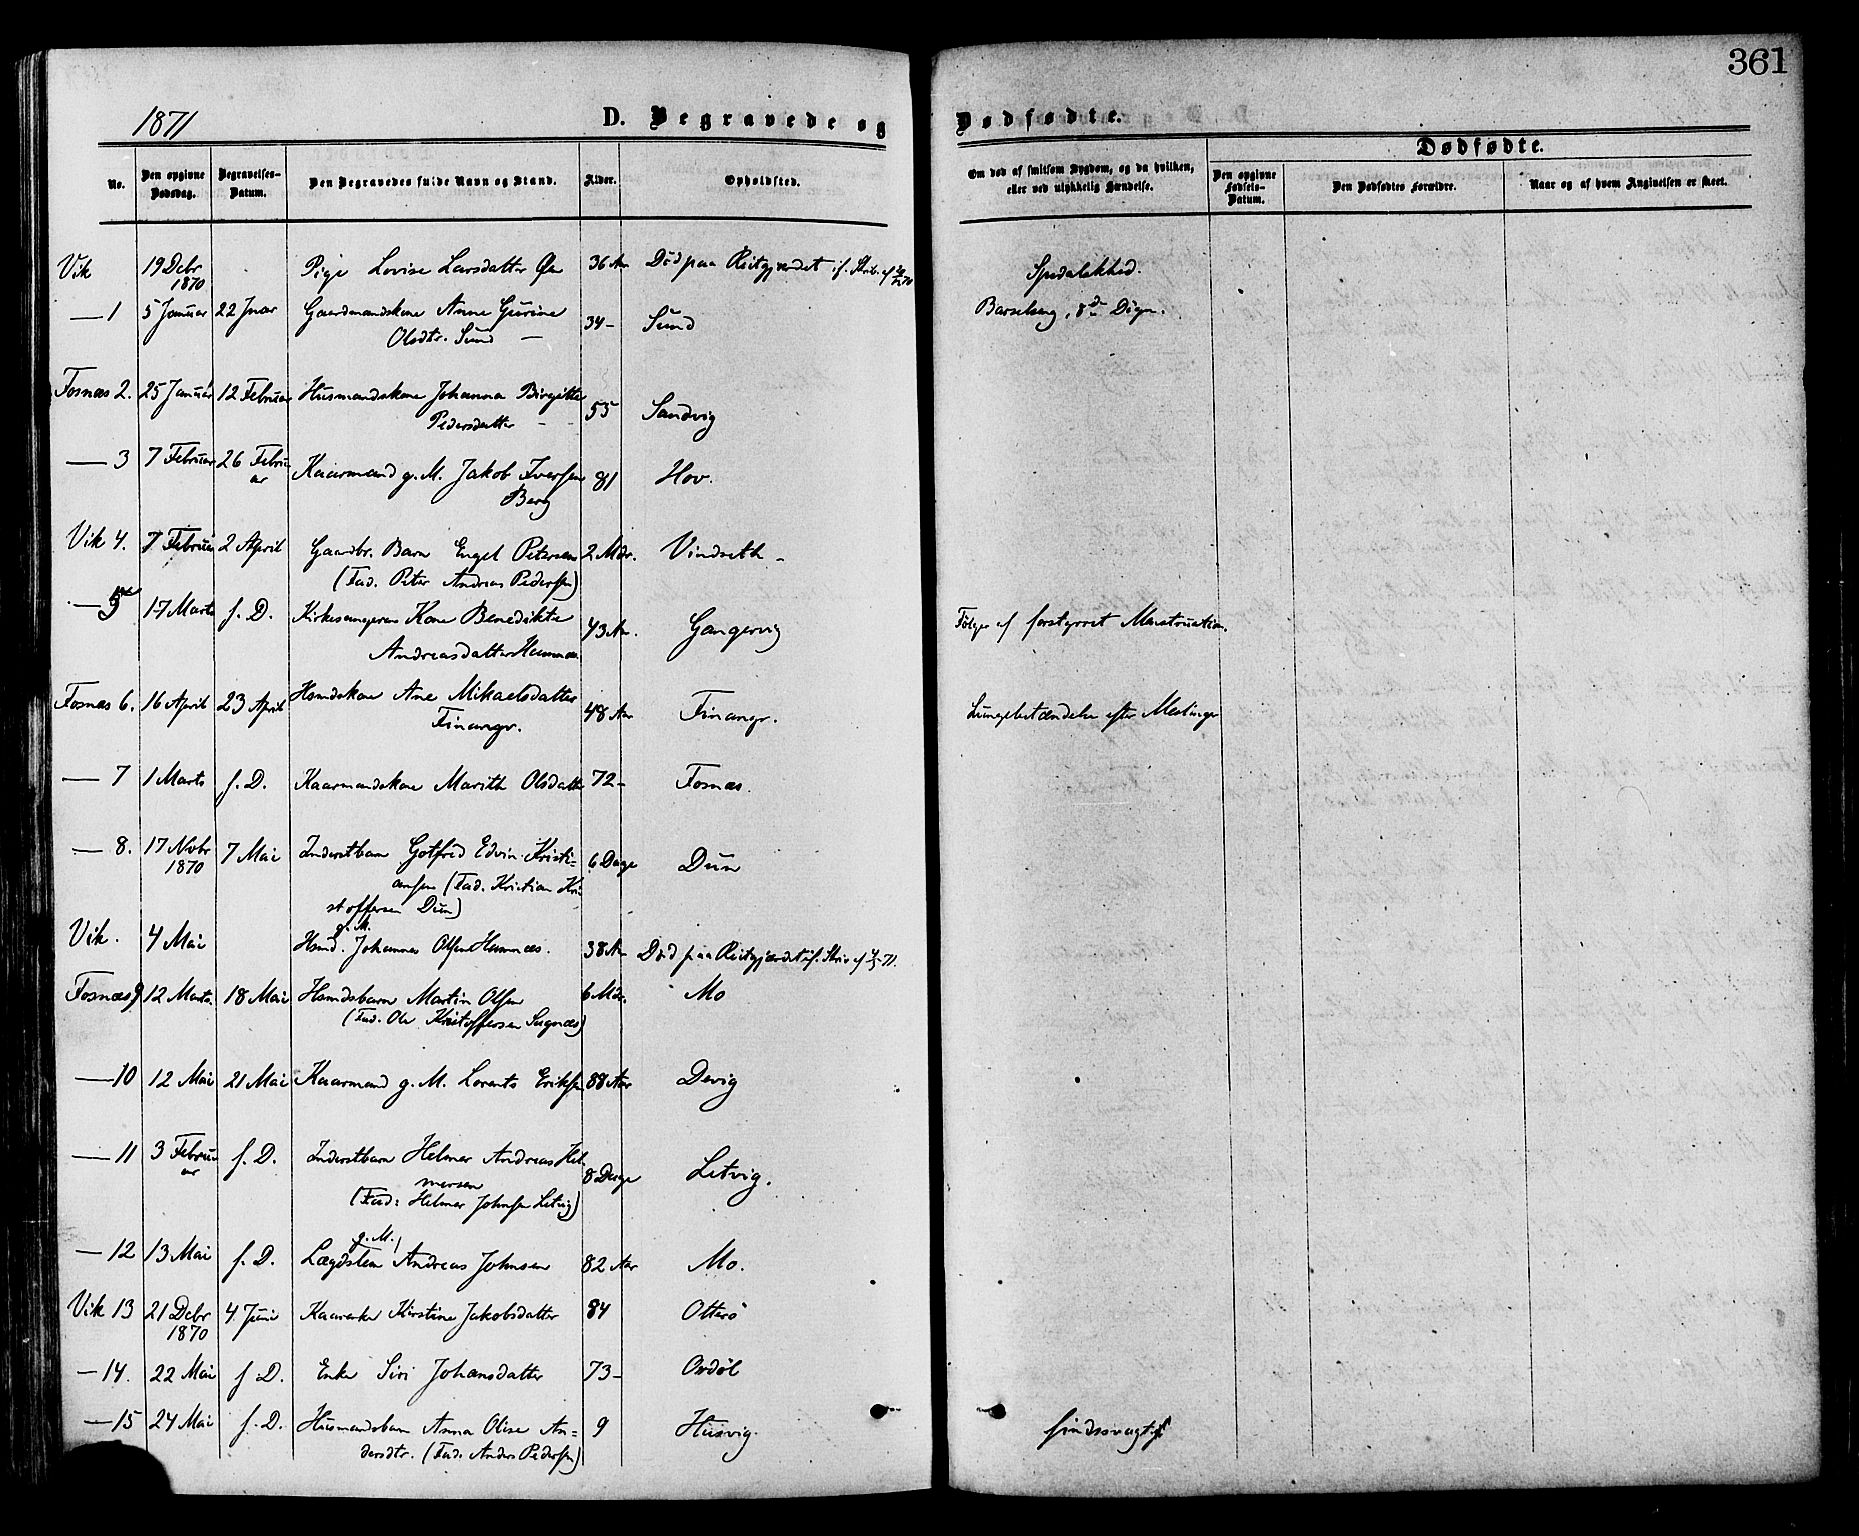 361
1871
D. Begravede og Dødfødte.
Dødfødte.
No. Den opgivne Dødsdag. Begravelses-Datum. Den Begravedes fulde Navn og Stand. Alder. Opholdsted. Om død af smitsom Sygdom, og da hvilken, eller ved ulykkelig Hændelse. Den opgivne Fødsels-Datum. Den Dødfødtes Forældre. Naar og af hvem Angivelsen er skeet.
Vik 19 Debr 1870 Pige Lovise Larsdatter 36 Aar Død paa Reitgjerdet if. Skriv. af Spedalskhed.
— 1 5 Januar 22 Januar Gaardmandskone Anne Gurine 34 – Sund Barselseng, 8de Dagen.
Olsdtr. Sund —
Fosnæs 2. 25 Januar 12 Februar Husmandskone Johanna Birgitte 55 Sandvig
Pedersdatter
— 3 7 Februar 26 Februar Kaarmand g. M. Jakob Iversen 81 Hov.
Berg
Vik 4. 7 Februar 2 April Gaardbr. Barn Engel Petersen 2 Mdr. Vindseth
(Fad. Peter Andreas Pedersen)
— 5 17 Marts s. D. Kirkesangerens Kone Benedikte 43 Aar Gangervig Følger af forstyrret Menstruation.
Andreasdatter Hamnes
Fosnæs 6. 16 April 23 April Hsmdskone Ane Mikaelsdatter 48 Aar Finangr. Lungebetændelse efter Meslinger
Finangr.
— 7 1 Marts s. D. Kaarmandskone Marith Olsdatter 72 – Fosnæs.
— 8. 17 Novbr 1870 7 Mai Inderstbarn Gotfred Edvin Kristi= 6 Dage Dun
ansen (Fad. Kristian Kri
stoffersen Dun)
Vik. 4 Mai Hsmd. g. M. Johannes Olsen Hamnæs. 38 Aar Død paa Reitgjerdet if. Skriv. af
Fosnæs 9 12 Marts. 18 Mai Hsmdsbarn Martin Olsen 6 Mdr. Mo
(Fad. Ole Kristoffersen Sugnæs)
— 10 12 Mai 21 Mai Kaarmand g. M. Lorents Eriksen 88 Aar Devig
— 11 3 Februar s. D. Inderstbarn Helmer Andreas Hel 8 Dage Letvig.
mersen
(Fad: Helmer Johnsen Letvig)
— 12 13 Mai s. D. Lægdslem g. M. Andreas Johnsen 82 Aar Mo.
Vik 13 21 Debr 1870 4. Juni Kaarenke Kirstine Jakobsdatter 84 Otterø
— 14. 22 Mai s. D. Enke Siri Johansdatter 73 – Ordøl
— 15 24 Mai s. D. Husmandsbarn Anna Oline An= 9 Husvig. sindssvagt
dersdtr. (Fad: Anders Pedersen)